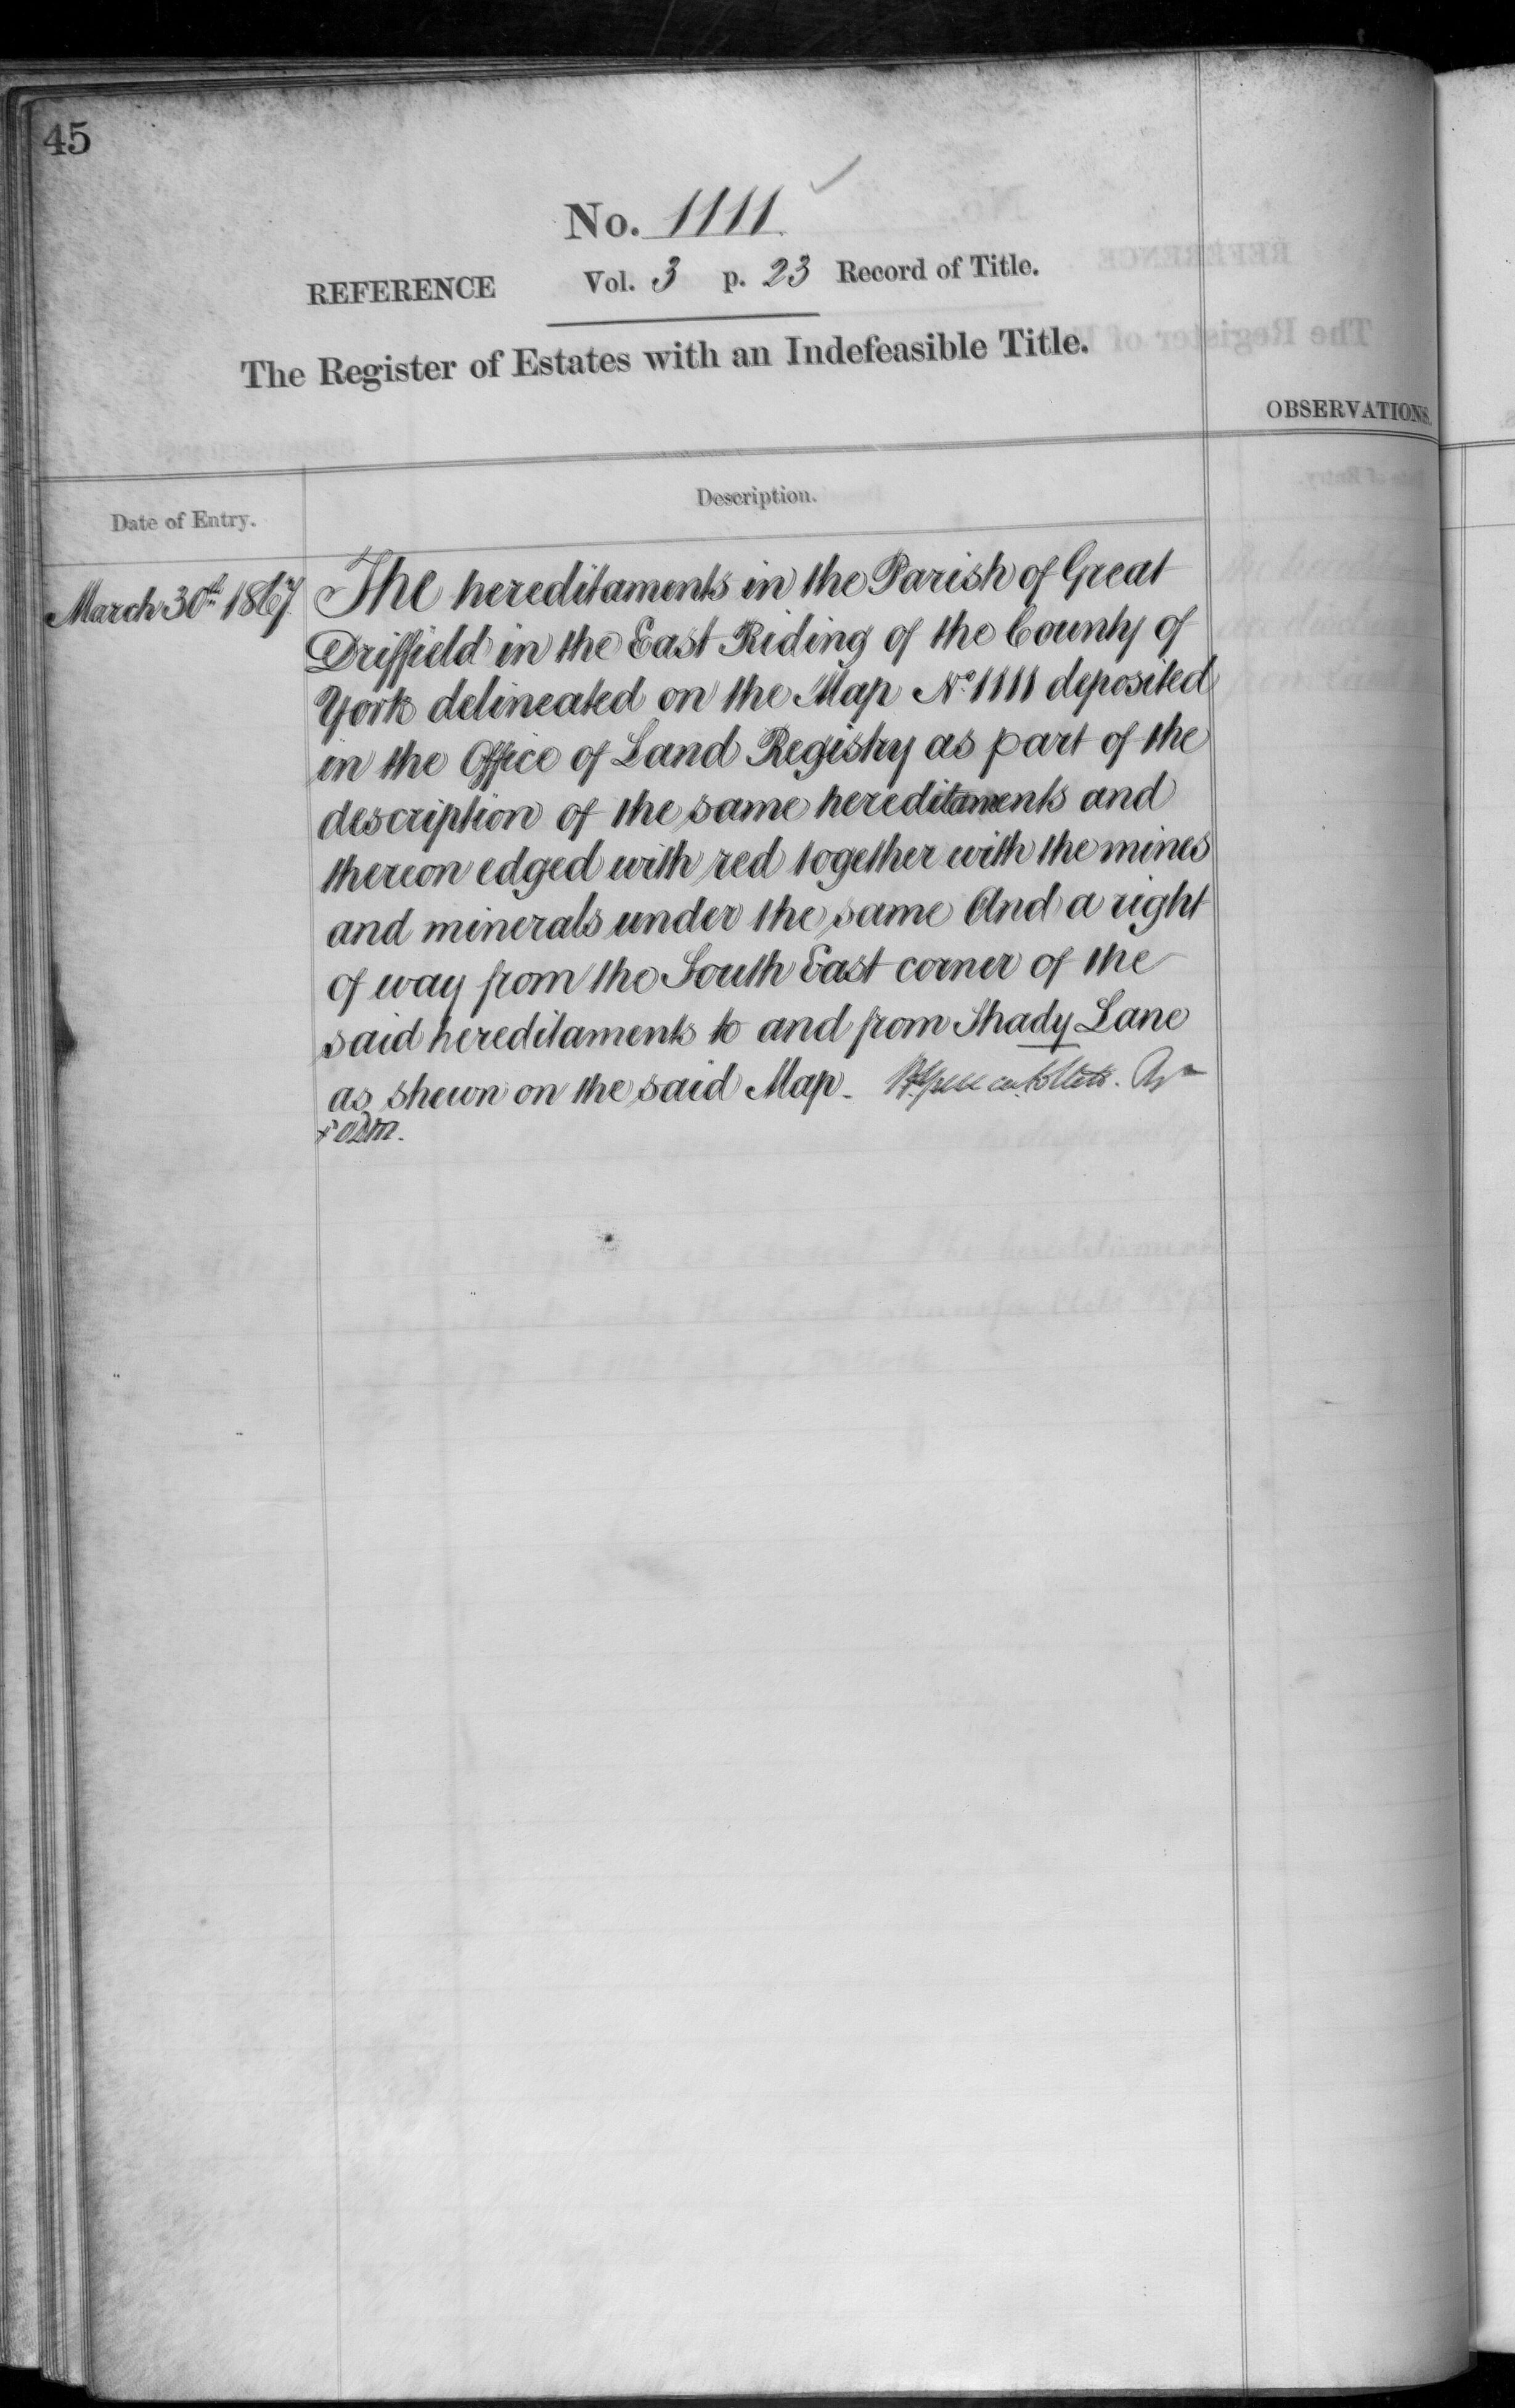 45
No. 1111
REFERENCE Vol. 3 p. 23 Record of Title.
The Register of Estates with an Indefeasible Title.
OBSERVATIONS.
Date of Entry.
Description.
March 30th 1867.
The hereditaments in the Parish of Great
Driffield in the East Riding of the County of
York delineated on the Map No. 1111 deposited
in the Office of Land Registry as part of the
description of the same hereditaments and
thereon edged with red together with the mines
and minerals under the same And a right
of way from the South East corner of the
said hereditaments to and from Shady Lane
as shewn on the said Map.